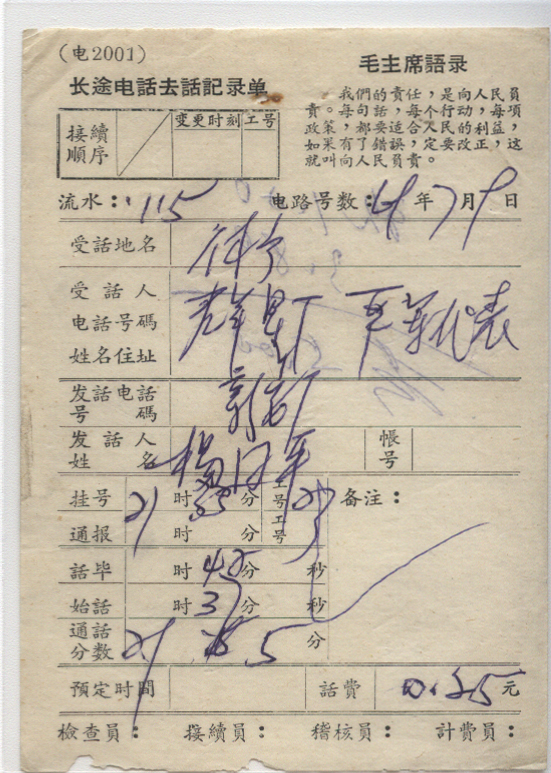 (电2001)
长途电話去話記录单
毛主席語录
我們的責任，是向人民負
責。每句話，每个行动，每項
政策，都要适合人民的利益，
如果有了錯誤，定要改正，这
就叫向人民負責。
接續
順序
变更时刻 工号
流水：115
电路号数： 年7月9日
受話地名
受話人
电話号碼
姓名住址
发話电話
号碼
发話人
姓名
楊
帳
号
挂号 21时35分 工号 25 备注：
通报 时 分 工号
話毕 时42分 秒
始話 时37分 秒
通話
分数 21 5分
預定时間 話費 0.25元
檢查員： 接續員： 稽核員： 計費員：